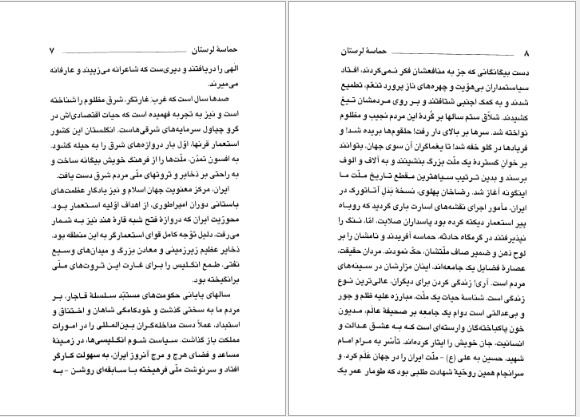 حماسهٔ لرستان ۷
الهی را دریافتند و دیری‌ست که شاعرانه می‌زییند و عارفانه
می‌میرند.
صدها سال است که غرب: غارتگر، شرق مظلوم را شناخته
است و نیز به تجربه فهمیده است که حیات اقتصادی‌اش در
گرو چپاول سرمایه‌های شرقی‌هاست. انگلستان این کشور
استعمار قرنها، اوّل بار دروازه‌های شرق را به حیله گشود.
به افسون تمدّن، ملّت‌ها را از فرهنگ خویش بیگانه ساخت و
به راحتی بر ذخایر و ثروتهای ملّی مردم شرق دست یافت.
ایران، مرکز معنویت جهان اسلام و نیز یادگار عظمت‌های
باستانی دوران امپراطوری، از اهداف اوّلیه استعمار بود.
محوریّت ایران که دروازهٔ فتح شبه قارهٔ هند نیز به شمار
می‌رفت، دلیل توّجه کامل قوای استعمارگر به این منطقه بود.
ذخایر عظیم زیرزمینی و معادن بزرگ و میدان‌های وسیع
نفتی، طمع انگلیس را برای غارت این ثروت‌های ملّی
برانگیخته بود.
سالهای پایانی حکومت‌های مستبّد سلسلهٔ قاجار، بر
مردم ما به سختی گذشت و خودکامگی شاهان و اختناق و
استبداد، عملاً دست مداخله‌گران بین‌المللی را در امورات
مملکت باز گذاشت. سیاست شوم انگلیسی‌ها، در زمینهٔ
مساعد و فضای هرج و مرج آنروز ایران، به سهولت کارگر
افتاد و سرنوشت ملّی فرهیخته با سابقه‌ای روشن - به
۸ حماسهٔ لرستان
دست بیگانگانی که جز به منافعشان فکر نمی‌کردند، افتاد
سیاستمداران بی‌هویّت و چهره‌های ناز پرورد تنعّم، تطمیع
شدند و به کمک اجنبی شتافتند و بر روی مردمشان تیغ
کشیدند. شلاّق ستم سالها بر گُردهٔ این مردم نجیب و مظلوم
نواخته شد. سرها بر بالای دار رفت! حلقوم‌ها بریده شد! و
فریادها در گلو خفه شد! تا یغماگران آن سوی جهان، بتوانند
بر خوان گستردهٔ یک ملّت بزرگ بنشینند و به آلاف و الوف
برسند و بدین ترتیب سیاهترین مقطع تاریخ ملّت ما
اینگونه آغاز شد. رضاخان پهلوی، نسخهٔ بدل آتاتورک در
ایران، مأمور اجرای نقشه‌های اسارت باری گردید که روباه
پیر استعمار دیکته کرده بود پاسداران صلابت، امّا، ننگ را
نپذیرفتند در گرمگاه حادثه، حماسه آفریدند و نامشان را بر
لوح ذهن و ضمیر صاف ملّتشان، حکّ نمودند. مردان حقیقت،
عصارهٔ فضایل یک جامعه‌اند. اینان مزارشان در سینه‌های
مردم است. آری! زندگی کردن برای دیگران، عالی‌ترین نوع
زندگی است. شناسهٔ حیات یک ملّت، مبارزه علیه ظلم و جور
و بی‌عدالتی است دوام یک جامعه بر صحیفهٔ عالم، مدیون
خون پاکباختگان وارسته‌ای است که به عشق عدالت و
انسانیت، جان خویش را ایثار کرده‌اند. تأسّر به مرام امام
شهید، حسین به علی (ع) - ملّت ایران را در جهان عَلَم کرد. و
سرانجام همین روحیهٔ شهادت طلبی بود که طومار عمر یک